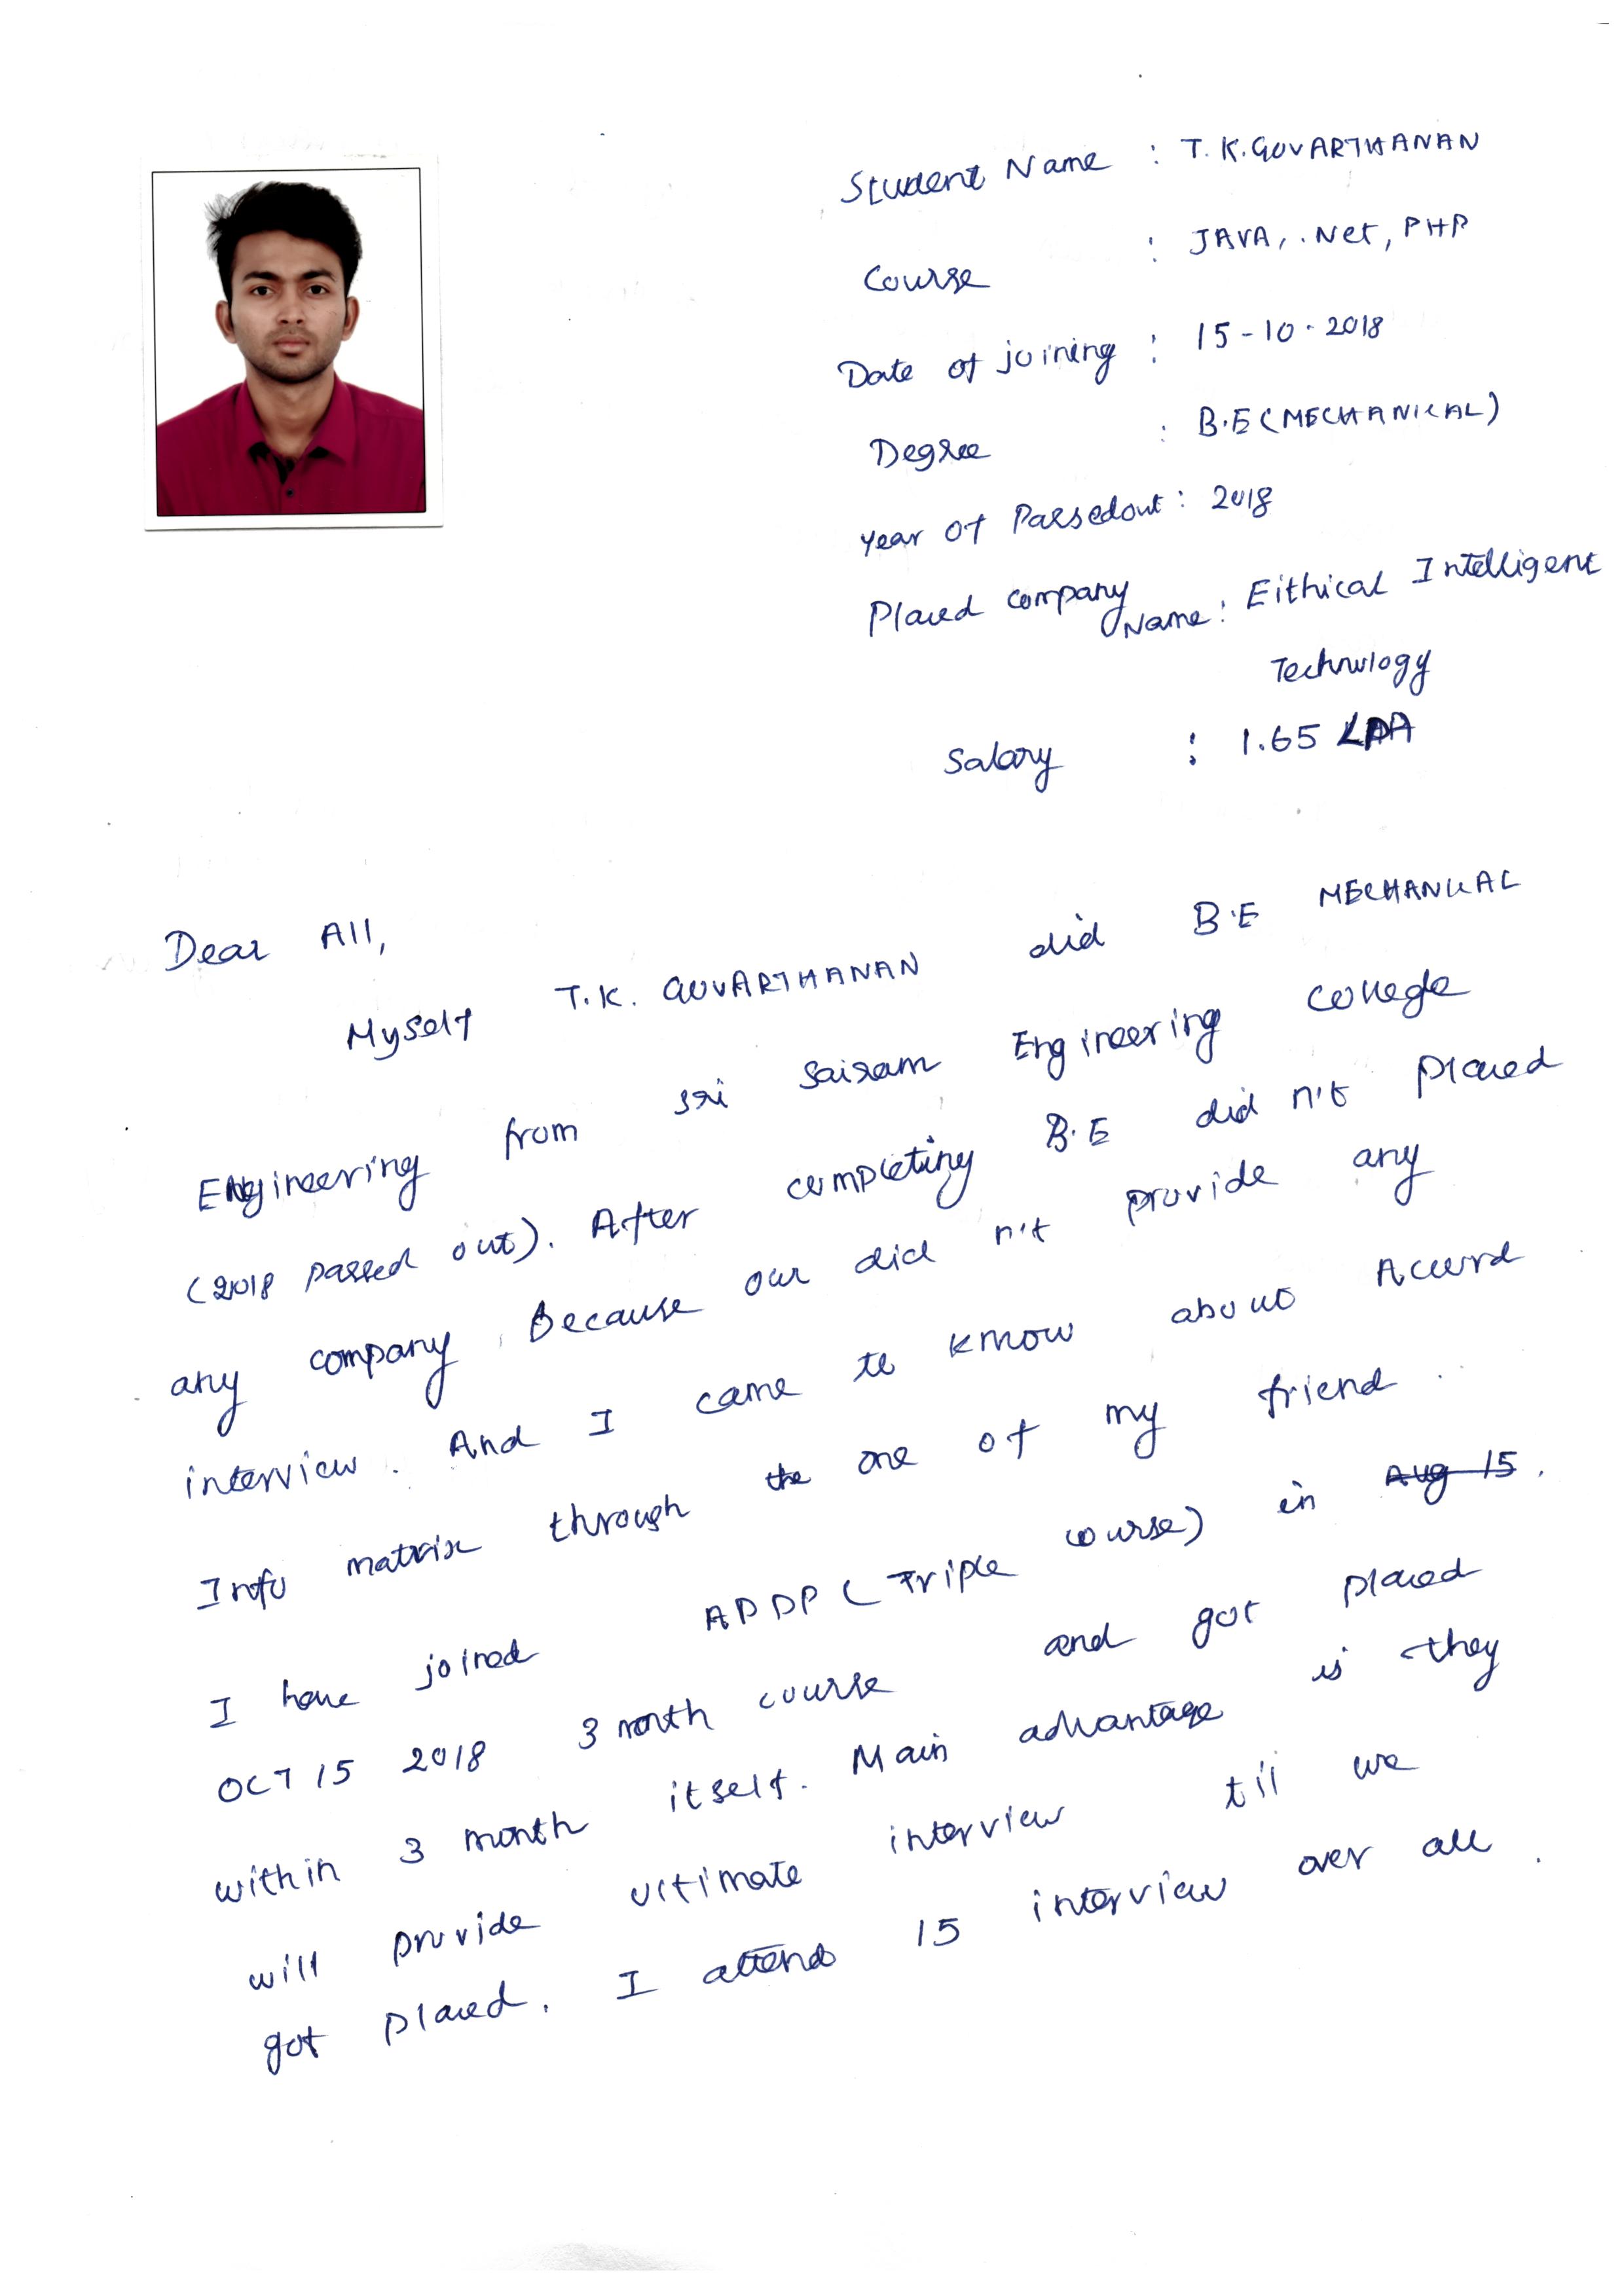 Student Name : T.K.GOVARTHANAN
Course : JAVA, .Net, PHP
Date of joining : 15-10-2018
Degree : B.E (MECHANICAL)
Year of Passedout : 2018
Placed company Name : Eithical Intelligent
Technology
Salary : 1.65 LPA
Dear All,
Myself T.K. GOVARTHANAN did B.E MECHANICAL
Engineering from sri Sairam Engineering College
(2018 passed out). After completing B.E did n't placed
any company Because our did n't provide any
interview. And I came to know about Accord
Info matrix through the one of my friend.
I have joined APDP (Triple course) in Aug 15.
OCT 15 2018 3 month course and got placed
within 3 month itself. Main advantage is they
will provide ultimate interview till we
got placed. I attend 15 interview over all.